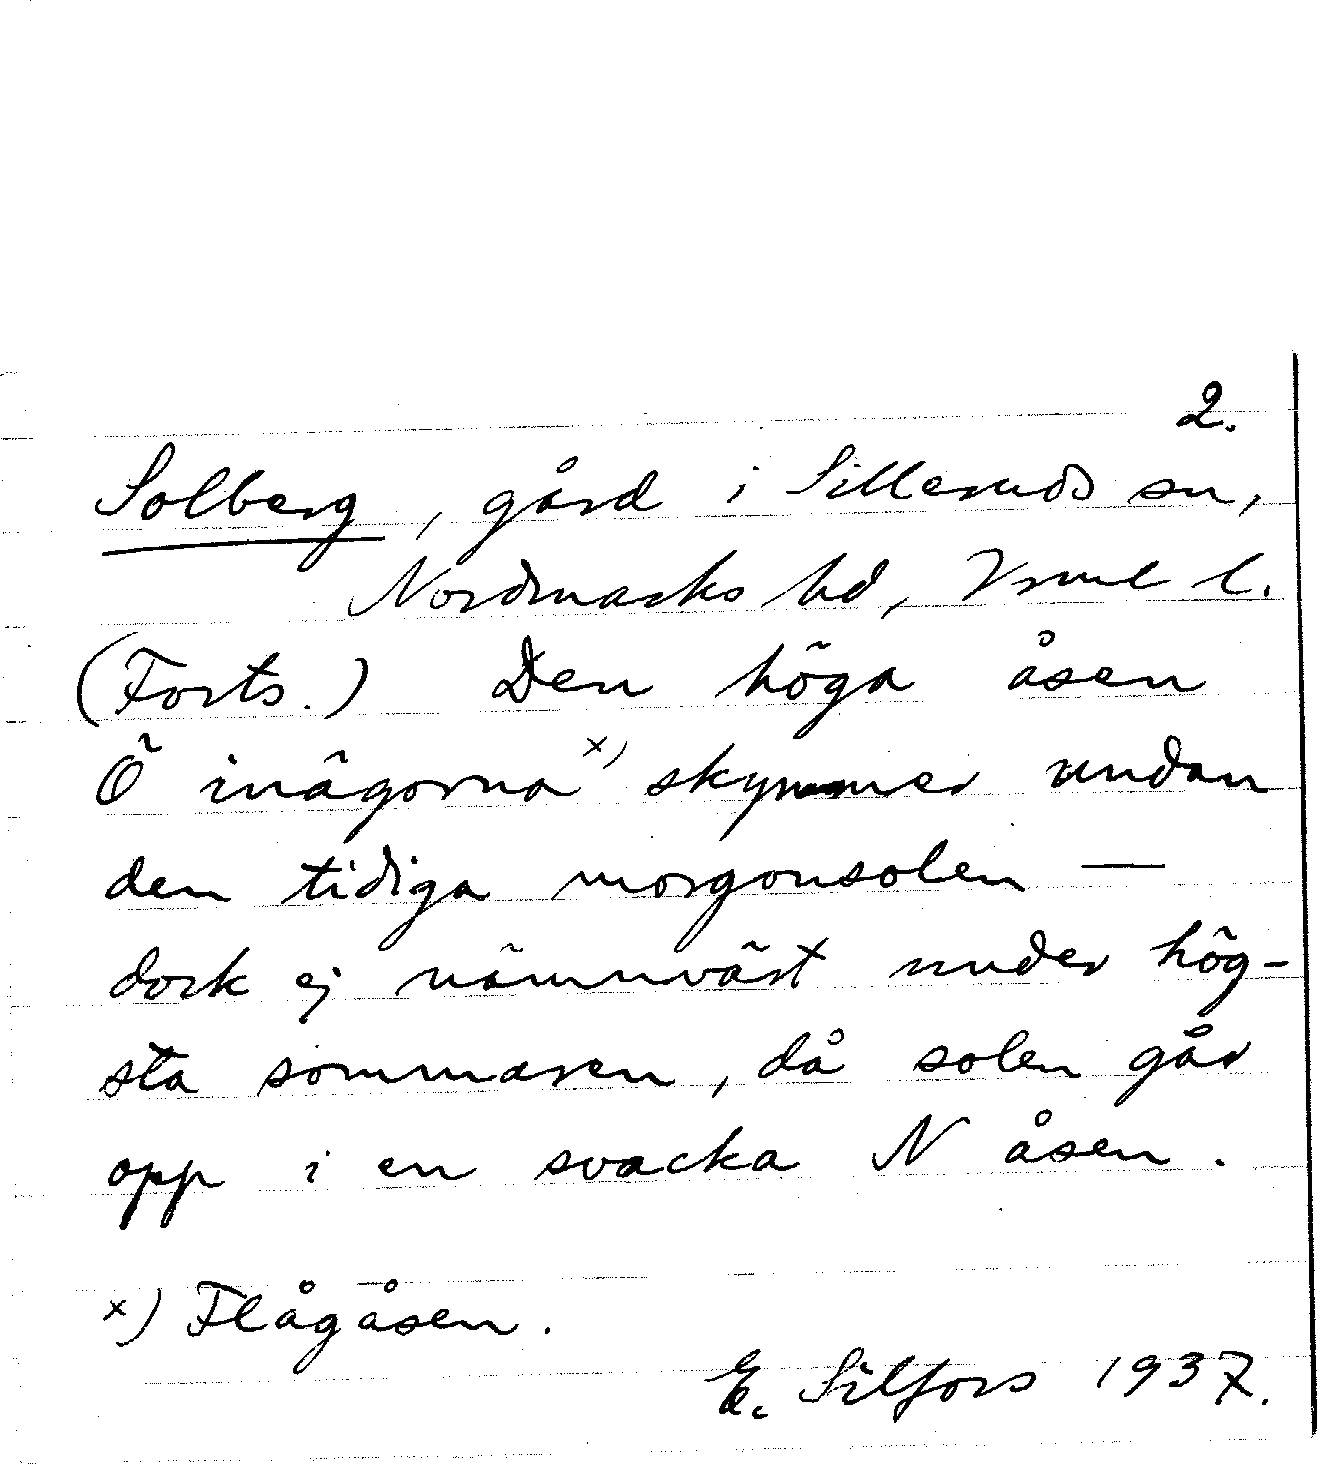 2.
Solberg, gård i Silleruds sn,
Nordmarks hd, Vrml l.
(Forts.) Den höga åsen
Ö inägorna x) skymmer undan
den tidiga morgonsolen —
dock ej nämnvärt under hög-
sta sommaren, då solen går
opp i en svacka N åsen.
x) Flågåsen.
E. Silfors 1937.